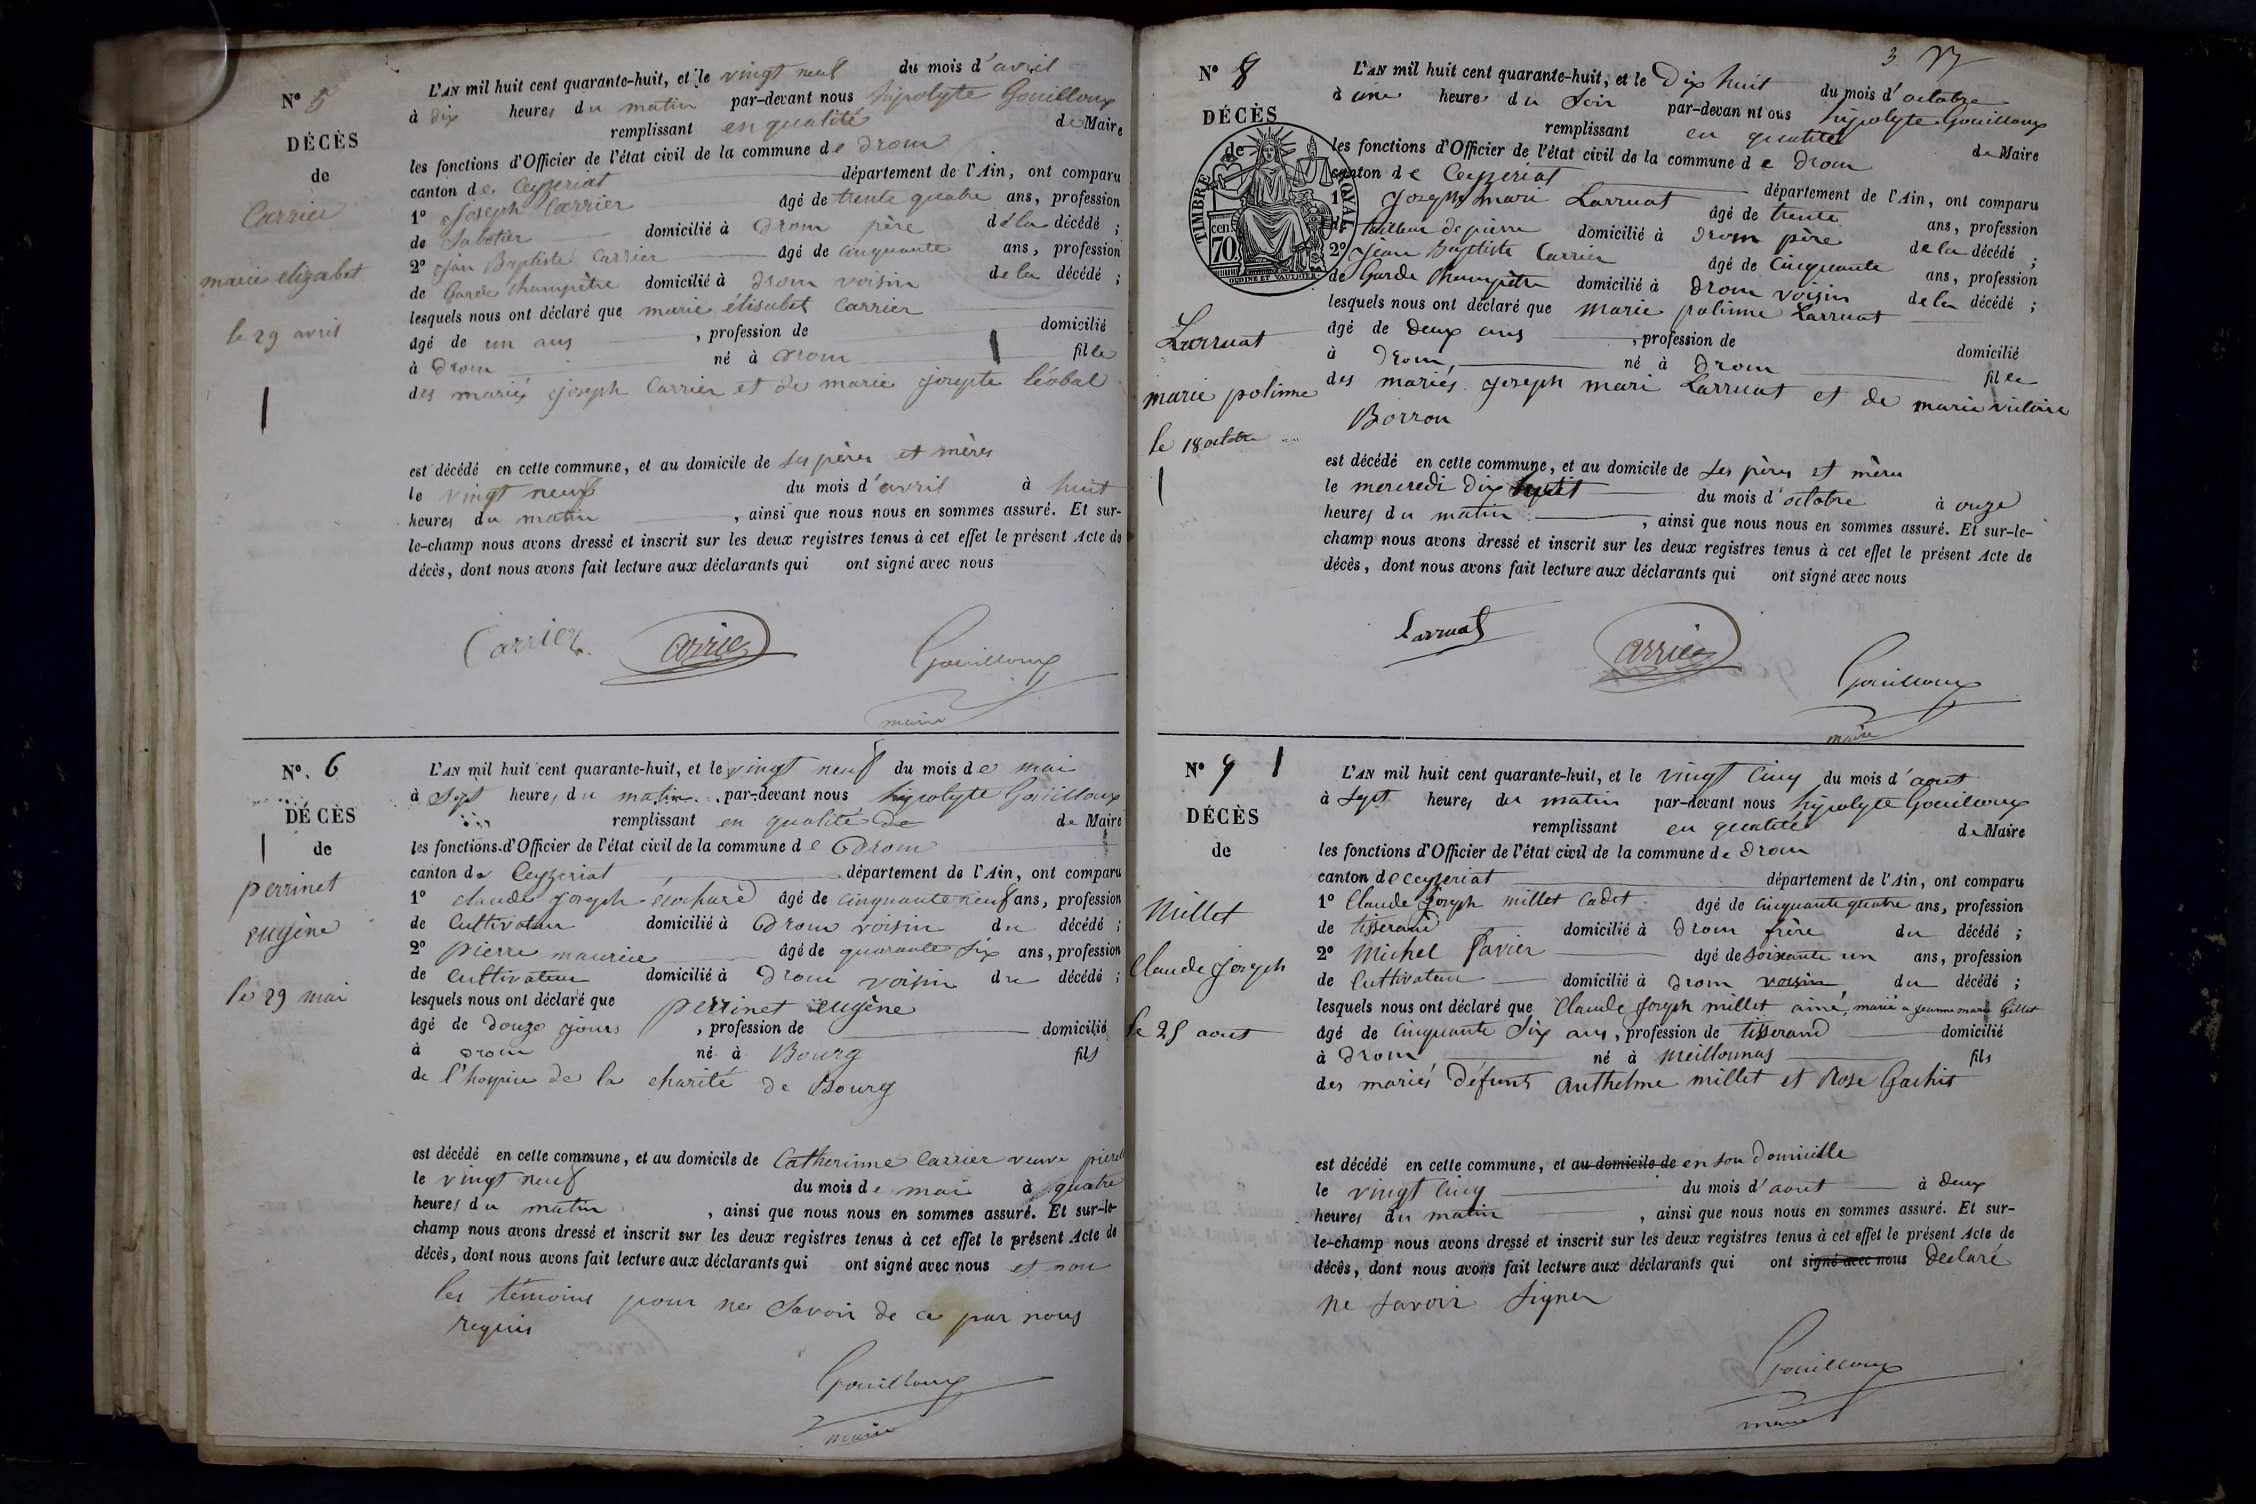 N° 5
DÉCÈS
de
Carrier
marie elizabet
le 29 avril
L'AN mil huit cent quarante-huit, et le vingt neuf du mois d'avril
à dix heures du matin par-devant nous hipolyte Gouilloux
remplissant en qualité de Maire
les fonctions d'Officier de l'état civil de la commune de Drom
canton de Ceyzeriat département de l'Ain, ont comparu
1° Joseph Carrier âgé de trente quatre ans, profession
de Sabotier domicilié à Drom père de la décédé ;
2° Jean Baptiste Carrier âgé de cinquante ans, profession
de Garde Champètre domicilié à Drom voisin de la décédé ;
lesquels nous ont déclaré que marie élisabet Carrier
âgé de un ans , profession de domicilié
à Drom né à Drom fille
des mariés Joseph Carrier et de marie josepte Léobal
est décédé en cette commune, et au domicile de ses pères et mères
le vingt neuf du mois d'avril à huit
heures du matin , ainsi que nous nous en sommes assuré. Et sur-
le-champ nous avons dressé et inscrit sur les deux registres tenus à cet effet le présent Acte de
décès, dont nous avons fait lecture aux déclarants qui ont signé avec nous
Carrier Carrier Gouilloux
maire
N°. 6
DÉCÈS
de
perrinet
eugène
le 29 mai
L'AN mil huit cent quarante-huit, et le vingt neuf du mois de mai
à Sept heures du matin par-devant nous hipolyte Gouilloux
remplissant en qualité de de Maire
les fonctions d'Officier de l'état civil de la commune de Drom
canton de Ceyzeriat département de l'Ain, ont comparu
1° claude joseph âgé de cinquante neuf ans, profession
de Cultivateur domicilié à Drom voisin du décédé ;
2° pierre maurice âgé de quarante six ans, profession
de Cultivateur domicilié à Drom voisin du décédé ;
lesquels nous ont déclaré que perrinet eugène
âgé de Douze jours , profession de domicilié
à Drom né à Bourg fils
de l'hospice de la charité de Bourg
est décédé en cette commune, et au domicile de Catherinne Carrier veuve
le vingt neuf du mois de mai à quatre
heures du matin , ainsi que nous nous en sommes assuré. Et sur-le-
champ nous avons dressé et inscrit sur les deux registres tenus à cet effet le présent Acte de
décès, dont nous avons fait lecture aux déclarants qui ont signé avec nous et non
les témoins pour ne Savoir de ce par nous
requis
Gouilloux
maire
3
N° 8
DÉCÈS
de
TIMBRE ROYAL
cen. 70
Larruat
marie polinne
le 18 octobre
L'AN mil huit cent quarante-huit, et le Dix huit du mois d'octobre
à une heure du Soir par-devan nt ous hipolyte Gouilloux
remplissant en qualité de Maire
les fonctions d'Officier de l'état civil de la commune de Drom
canton de Ceyzeriat département de l'Ain, ont comparu
1° Joseph mari Larruat âgé de trente ans, profession
de tailleur de pierre domicilié à Drom père de la décédé ;
2° Jean Baptiste Carrier âgé de Cinquante ans, profession
de Garde Champètre domicilié à Drom voisin de la décédé ;
lesquels nous ont déclaré que marie polinne Larruat
âgé de Deux ans , profession de domicilié
à Drom né à Drom fille
des mariés Joseph mari Larruat et de marie victoire
Borron
est décédé en cette commune, et au domicile de ses pères et mères
le mercredi dix huit du mois d'octobre à onze
heures du matin , ainsi que nous nous en sommes assuré. Et sur-le-
champ nous avons dressé et inscrit sur les deux registres tenus à cet effet le présent Acte de
décès, dont nous avons fait lecture aux déclarants qui ont signé avec nous
Larruat Carrier Gouilloux
maire
N° 9
DÉCÈS
de
Millet
Claude Joseph
le 25 aout
L'AN mil huit cent quarante-huit, et le vingt Cinq du mois d'aout
à Sept heures du matin par-devant nous hipolyte Gouilloux
remplissant en qualité de Maire
les fonctions d'Officier de l'état civil de la commune de Drom
canton de ceyzeriat département de l'Ain, ont comparu
1° Claude Joseph millet Cadet âgé de cinquante quatre ans, profession
de tisserand domicilié à Drom frère du décédé ;
2° Michel Favier âgé de soixante un ans, profession
de Cultivateur domicilié à Drom voisin du décédé ;
lesquels nous ont déclaré que Claude Joseph millet ainé, marié a jeanne marie Gillet
âgé de Cinquante Six ans, profession de tisserand domicilié
à Drom né à Meillonnas fils
des mariés Défunts Anthelme millet et Rose
est décédé en cette commune, et au domicile de en son Domicille
le vingt Cinq du mois d'aout à deux
heures du matin , ainsi que nous nous en sommes assuré. Et sur-
le-champ nous avons dressé et inscrit sur les deux registres tenus à cet effet le présent Acte de
décès, dont nous avons fait lecture aux déclarants qui ont signé avec nous Declaré
ne savoir signer
Gouilloux
maire